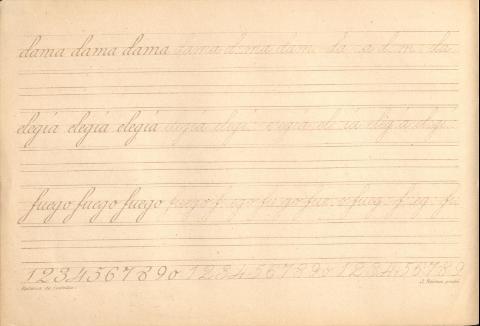 dama dama dama dama dama dam da a d m da
elegía elegía elegía elegía elegí elegía el ía elegía elegí
fuego fuego fuego fuego f ego fuego fue o fueg f eg fu
1 2 3 4 5 6 7 8 9 0 1 2 3 4 5 6 7 8 9 0 1 2 3 4 5 6 7 8 9